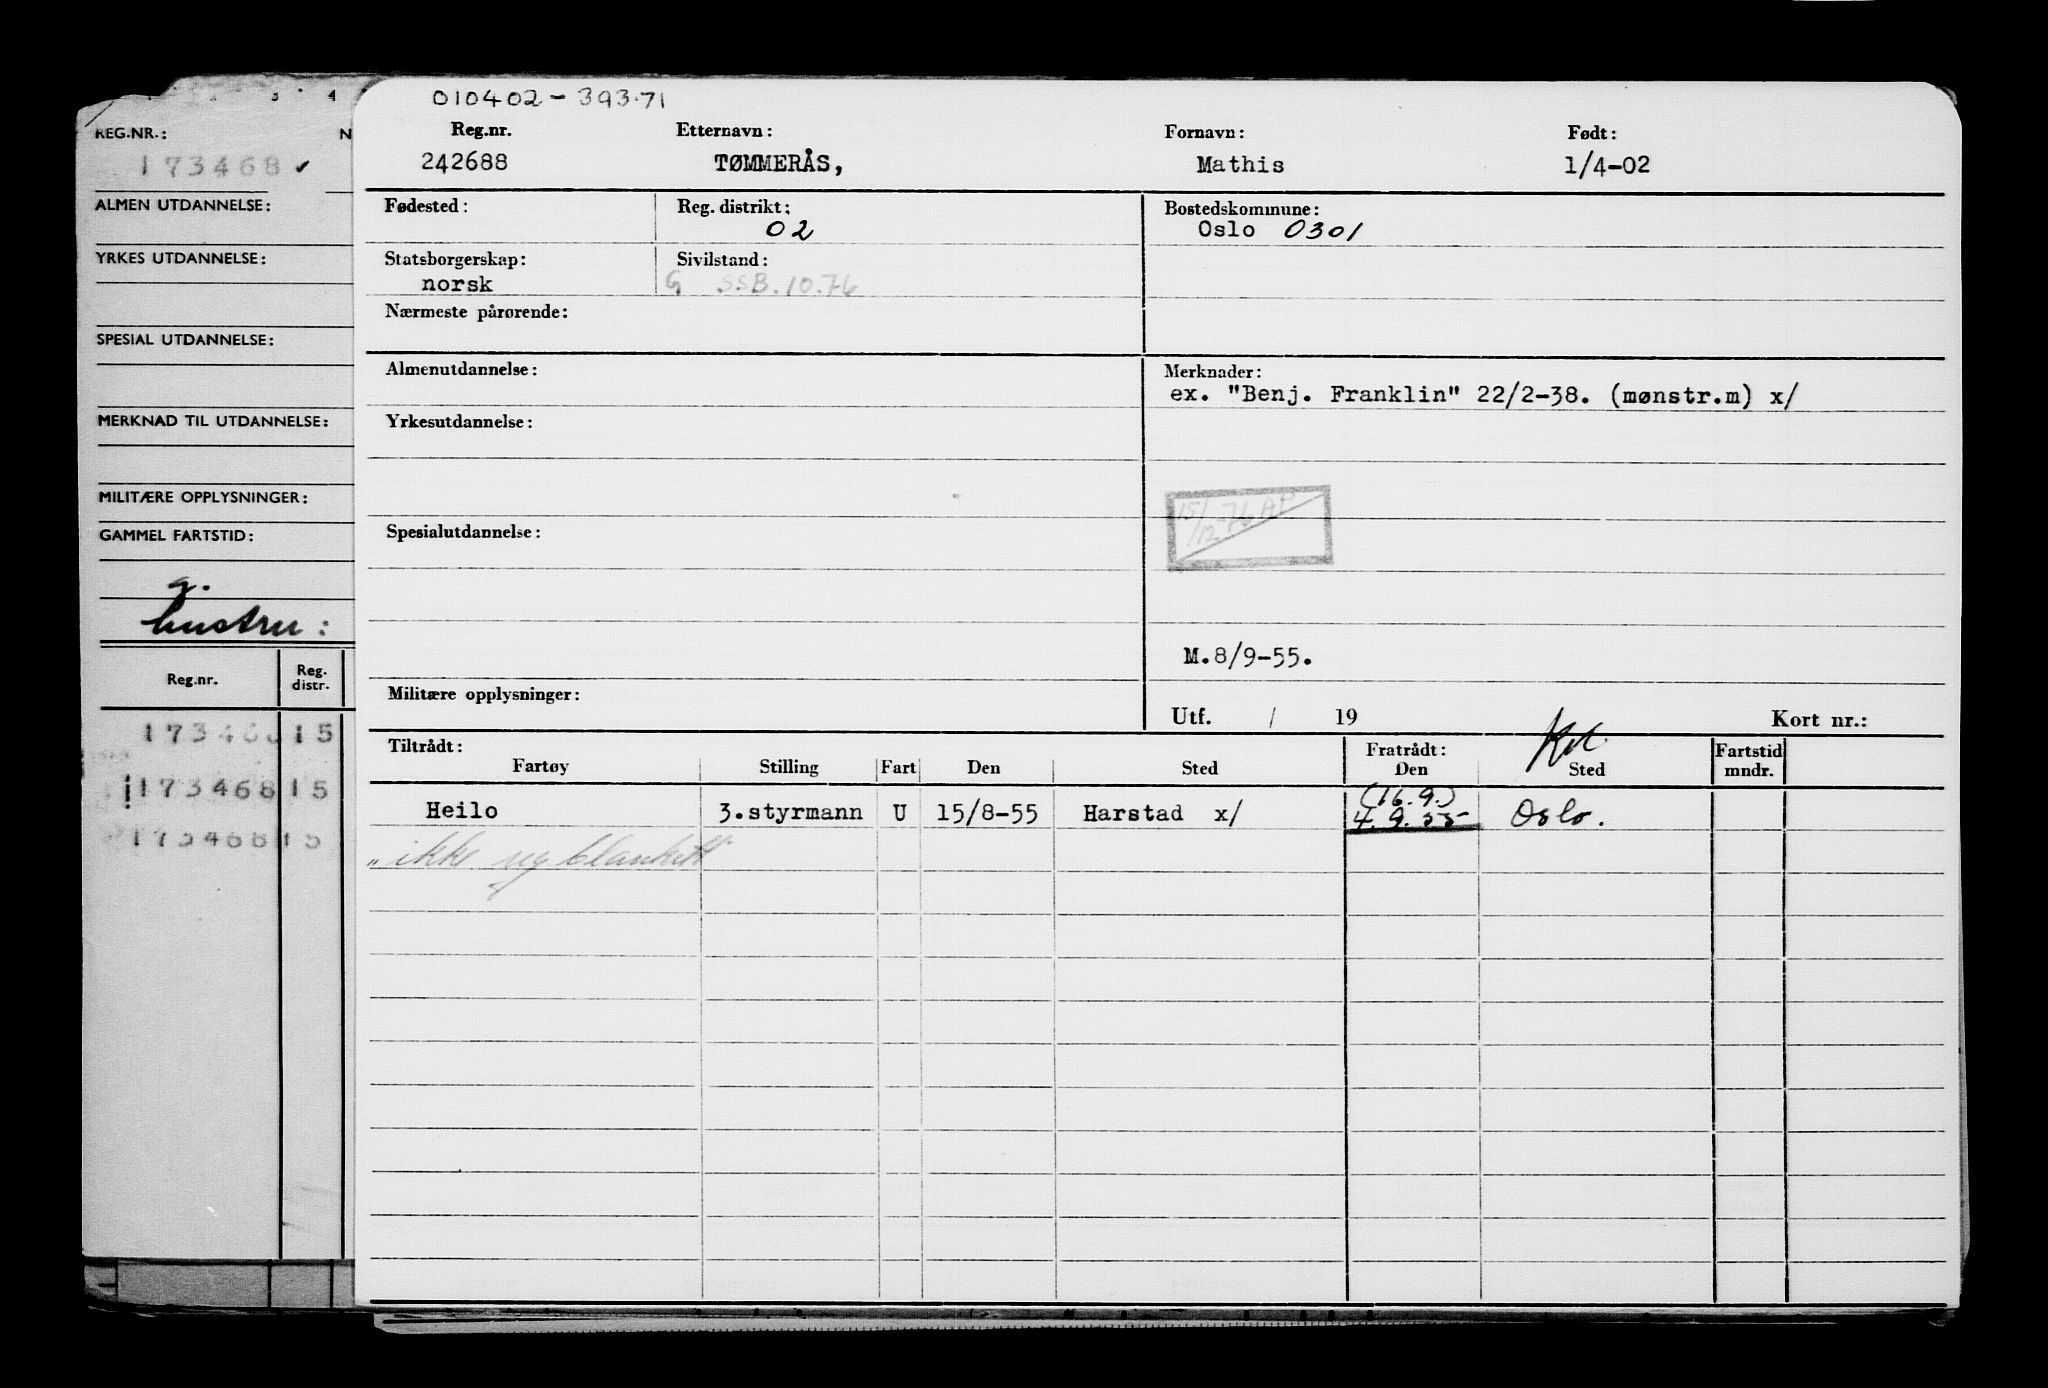 3 4
REG.NR.: N
173468 ✓
ALMEN UTDANNELSE:
YRKES UTDANNELSE:
SPESIAL UTDANNELSE:
MERKNAD TIL UTDANNELSE:
MILITÆRE OPPLYSNINGER:
GAMMEL FARTSTID:
g.
hustru:
Reg.nr. Reg. distr.
173468 15
173468 15
173468 15
010402-393.71
Reg.nr. Etternavn: Fornavn: Født:
242688 TØMMERÅS, Mathis 1/4-02
Fødested: Reg. distrikt: Bostedskommune:
02 Oslo 0301
Statsborgerskap: Sivilstand:
norsk G SSB.10.76
Nærmeste pårørende:
Almenutdannelse: Merknader:
ex. "Benj. Franklin" 22/2-38. (mønstr.m) x/
Yrkesutdannelse:
15/12-76 AP
Spesialutdannelse:
M.8/9-55.
Militære opplysninger:
Utf. / 19 Kort nr.:
Tiltrådt: Fratrådt: Fartstid
Fartøy Stilling Fart Den Sted Den Sted mndr.
(16.9.)
Heilo 3.styrmann U 15/8-55 Harstad x/ 4.9.55 Oslo.
"ikke reg blankett"